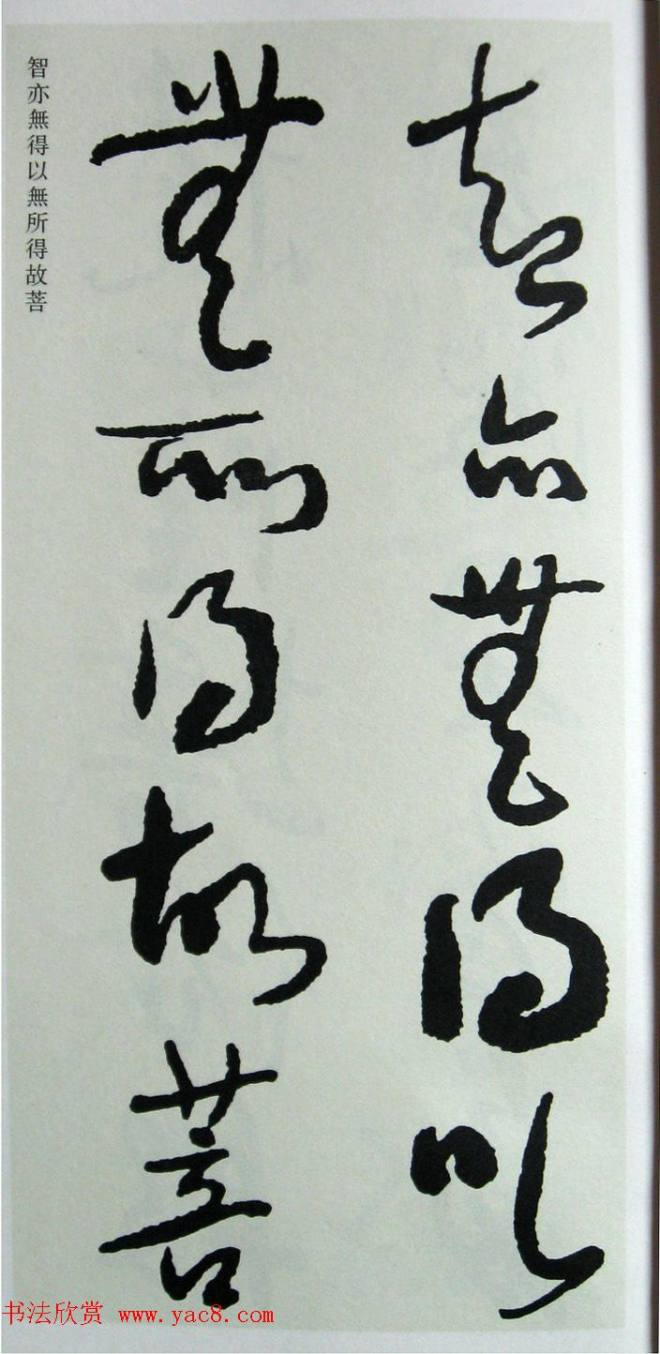 智亦無得以
無所得故菩
智亦無得以無所得故菩
书法欣赏 www.yac8.com